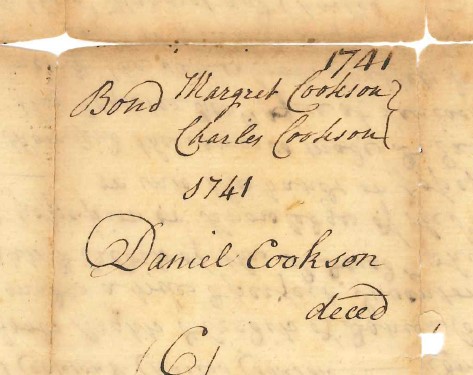 1741
Bond Margret Cookson}
Charles Cookson}
1741
Daniel Cookson
deced
(C)